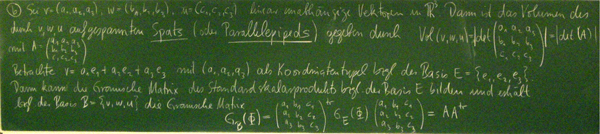 ⑥ Sei v=(a₁,a₂,a₃), w=(b₁,b₂,b₃), u=(c₁,c₂,c₃) linear unabhängige Vektoren in ℝ³. Dann ist das Volumen des
durch v,w,u aufgespannten Spats (oder Parallelepipeds) gegeben durch Vol(v,w,u)=|det(a₁ a₂ a₃ / b₁ b₂ b₃ / c₁ c₂ c₃)|=|det(A)|
mit A=(a₁ a₂ a₃ / b₁ b₂ b₃ / c₁ c₂ c₃)
Betrachte v=a₁e₁+a₂e₂+a₃e₃ mit (a₁,a₂,a₃) als Koordinatentupel bzgl. der Basis E={e₁,e₂,e₃}
Dann kann die Gramsche Matrix des Standardskalarproduktes bzgl. der Basis E bilden und erhält
bzgl. der Basis B={v,w,u} die Gramsche Matrix
G_B(Φ)=(a₁ b₁ c₁ / a₂ b₂ c₂ / a₃ b₃ c₃)^tr G_E(Φ)(a₁ b₁ c₁ / a₂ b₂ c₂ / a₃ b₃ c₃) = AA^tr